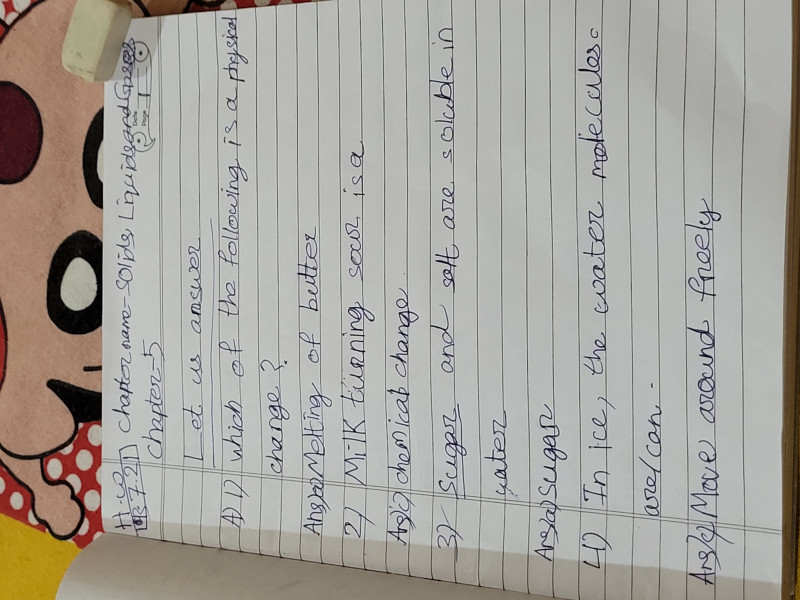 H.W Chapter name-Solids Liquids and Gases
Date
Page 1
3.7.21 chapter-5
Let us answer
A) 1) which of the following is a physical
change?
Ans(a) Melting of butter
2) Milk turning sour is a
Ans(c) chemical change.
3) Sugar and salt are soluble in
water
Ans(a) Sugar
4) In ice, the water molecules.
are/can.
Ans(c) Move around freely